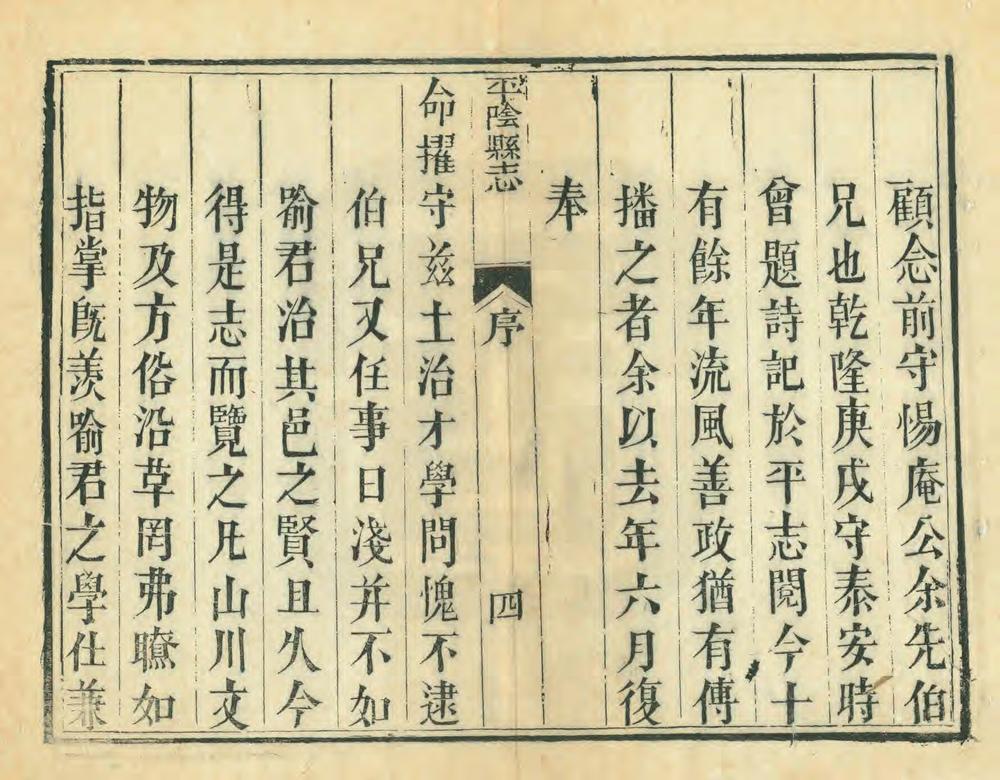 顧念前守惕庵公余先伯
兄也乾隆庚戌守泰安時
曾題詩記於平志閱今十
有餘年流風善政猶有傳
播之者余以去年六月復
奉
平陰縣志
序
四
命擢守兹土治才學問愧不逮
伯兄又任事日淺并不如
喻君治其邑之賢且久今
得是志而覽之凡山川文
物及方俗沿革罔弗瞭如
指掌旣羨喻君之學仕兼